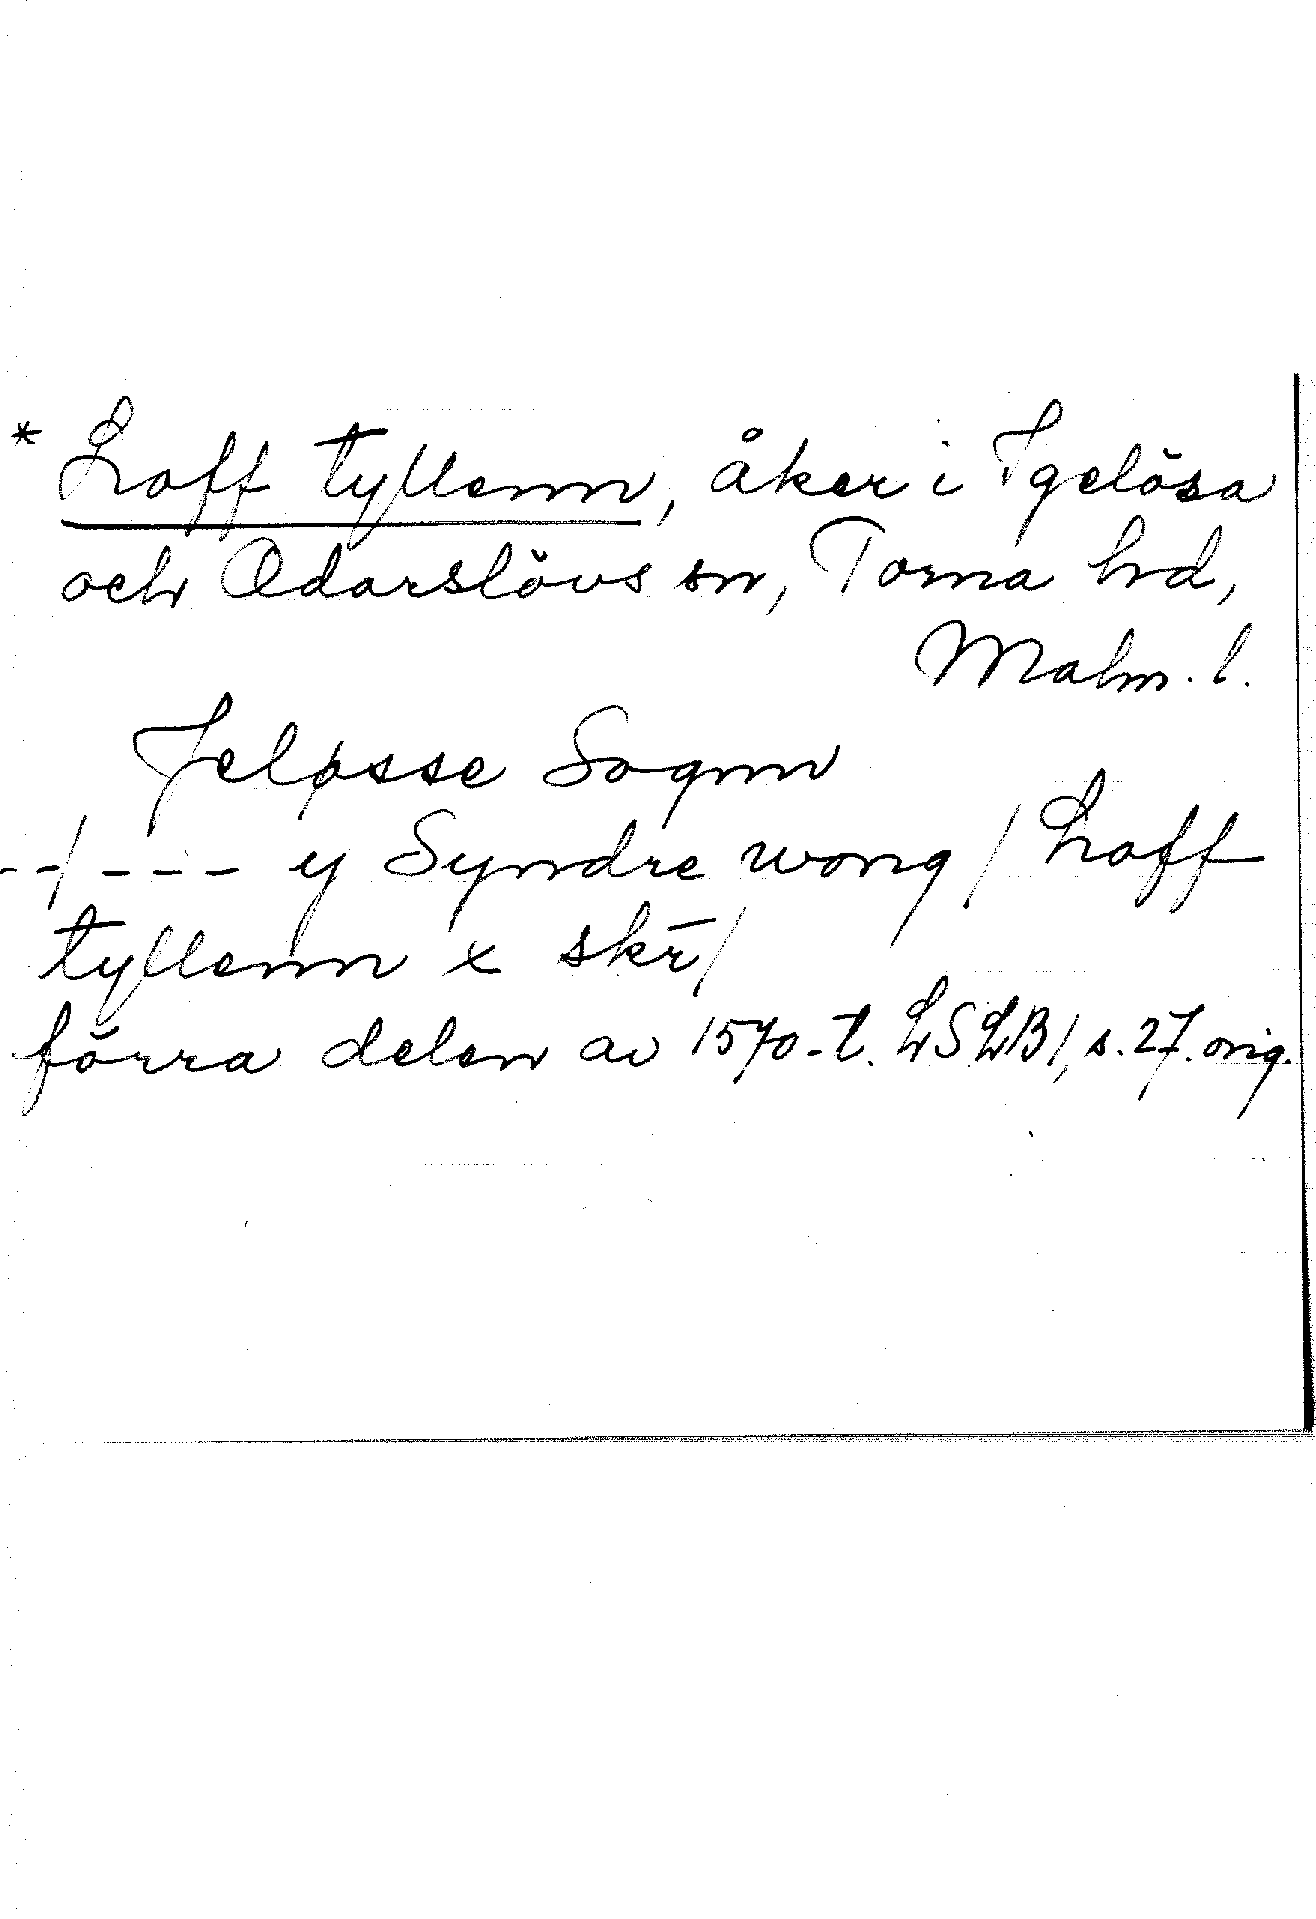 * Loff tyllenn, åker i Igelösa
och Odarslövs sn, Torna hd,
Malm. l.
Jeløsse Sognn
--/--- y Syndre wong / Loff
tyllenn x skr̄/
förra delen av 1570-t. LSLB 1, s. 27. orig.